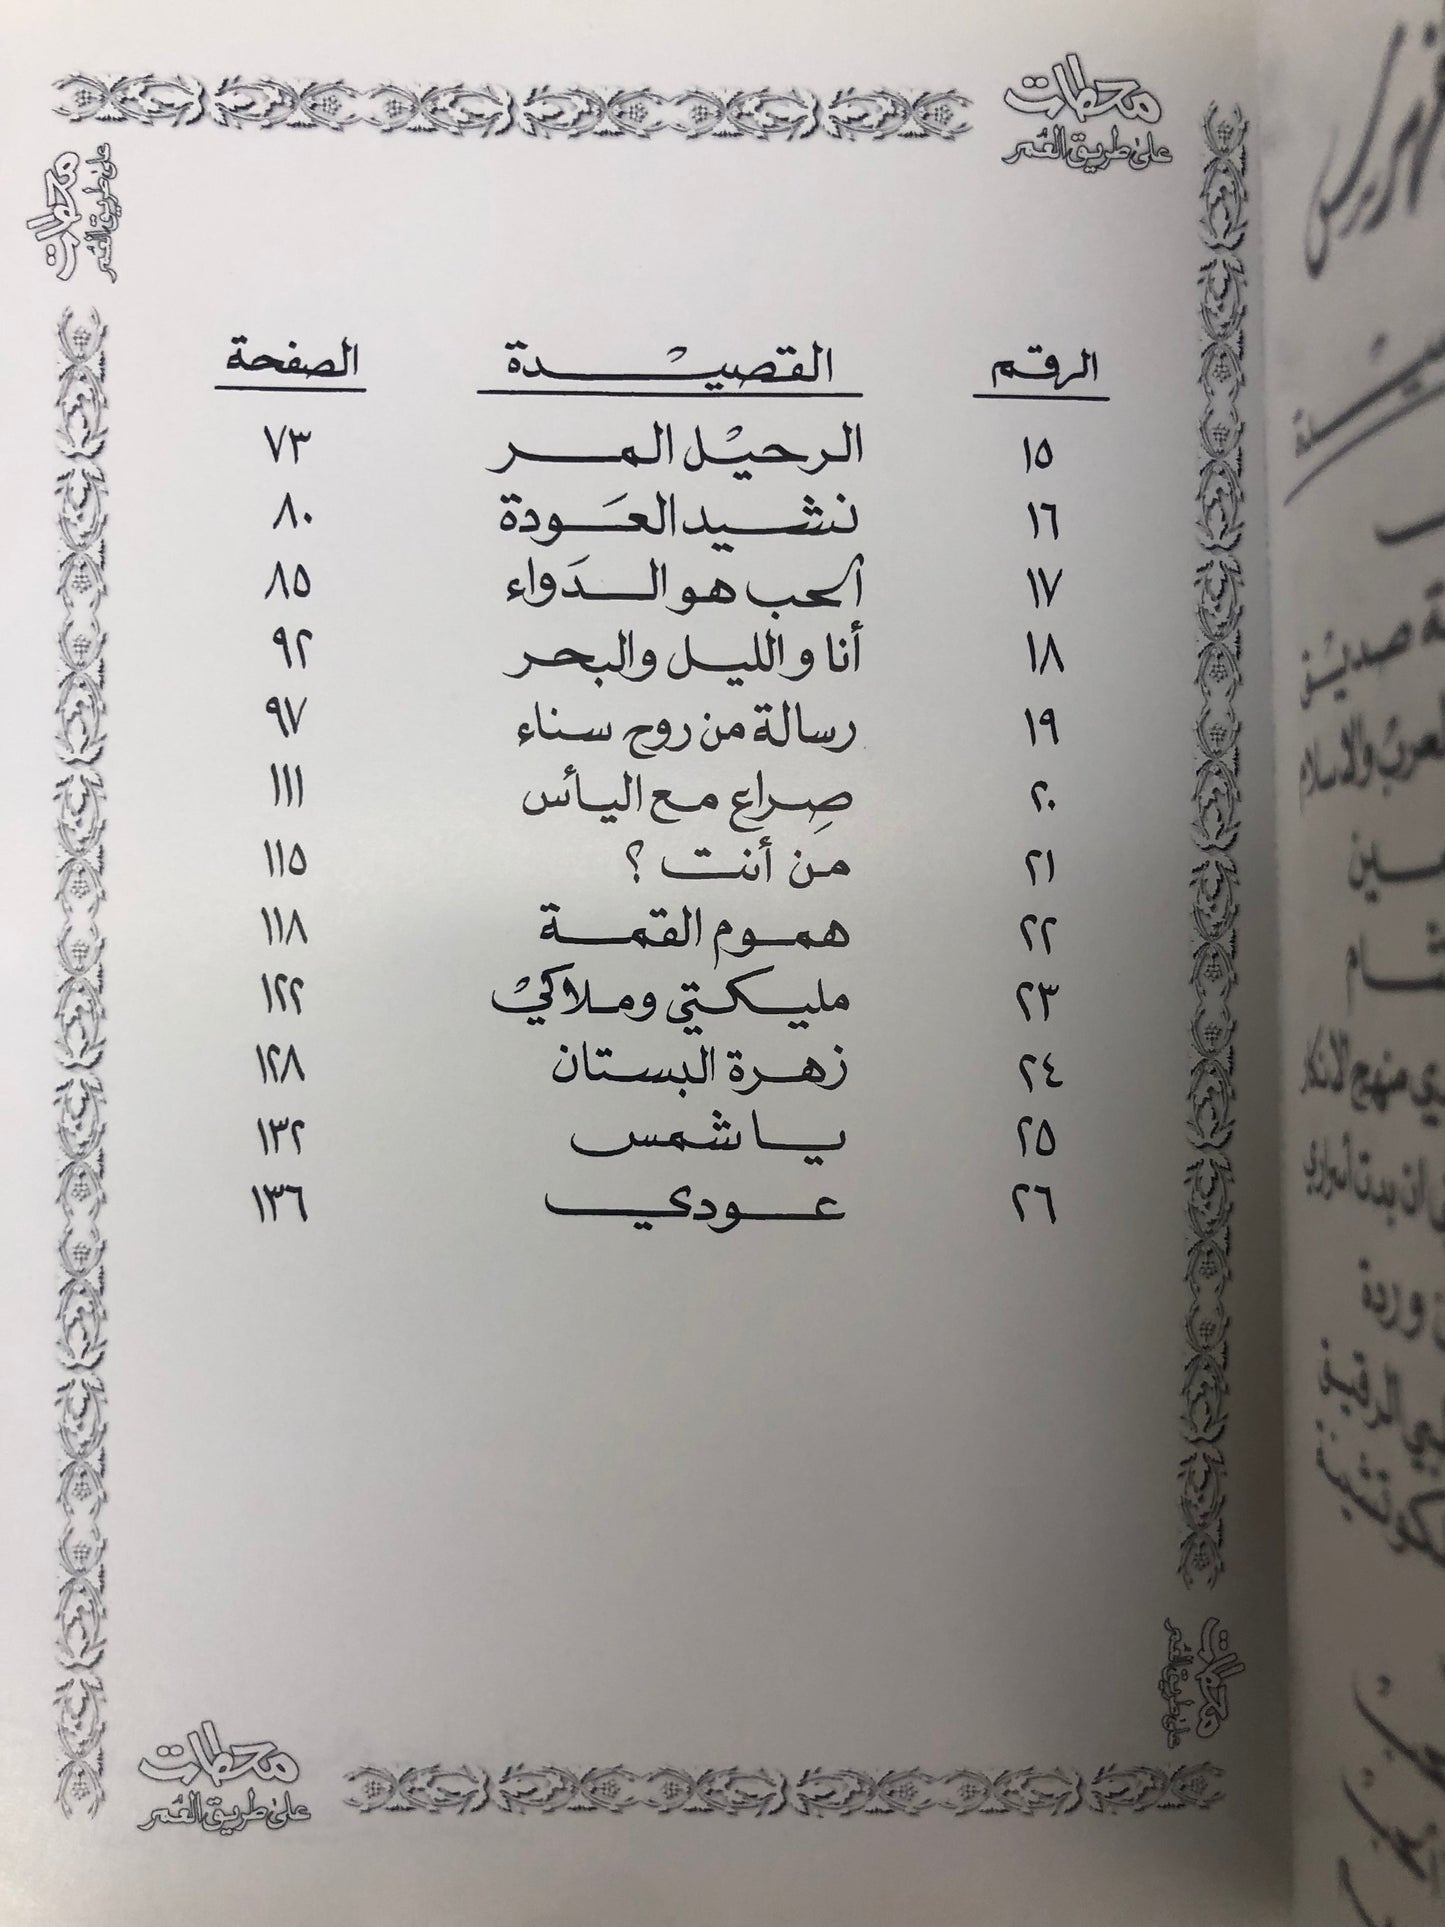 محطات
على طريق العُمر
محطات
على طريق العُمر
الرقم القصيدة الصفحة
١٥ الرحيل المر ٧٣
١٦ نشيد العَودة ٨٠
١٧ الحب هو الدَواء ٨٥
١٨ أنا والليل والبحر ٩٢
١٩ رسالة من روح سناء ٩٧
٢٠ صِراع مع اليأس ١١١
٢١ من أنت ؟ ١١٥
٢٢ هموم القمة ١١٨
٢٣ مليكتي وملاكي ١٢٢
٢٤ زهرة البستان ١٢٨
٢٥ يا شمس ١٣٢
٢٦ عودي ١٣٦
محطات
على طريق العُمر
محطات
على طريق العُمر
العرب والاسلام
منهج
ان بدت أسراري
وردة